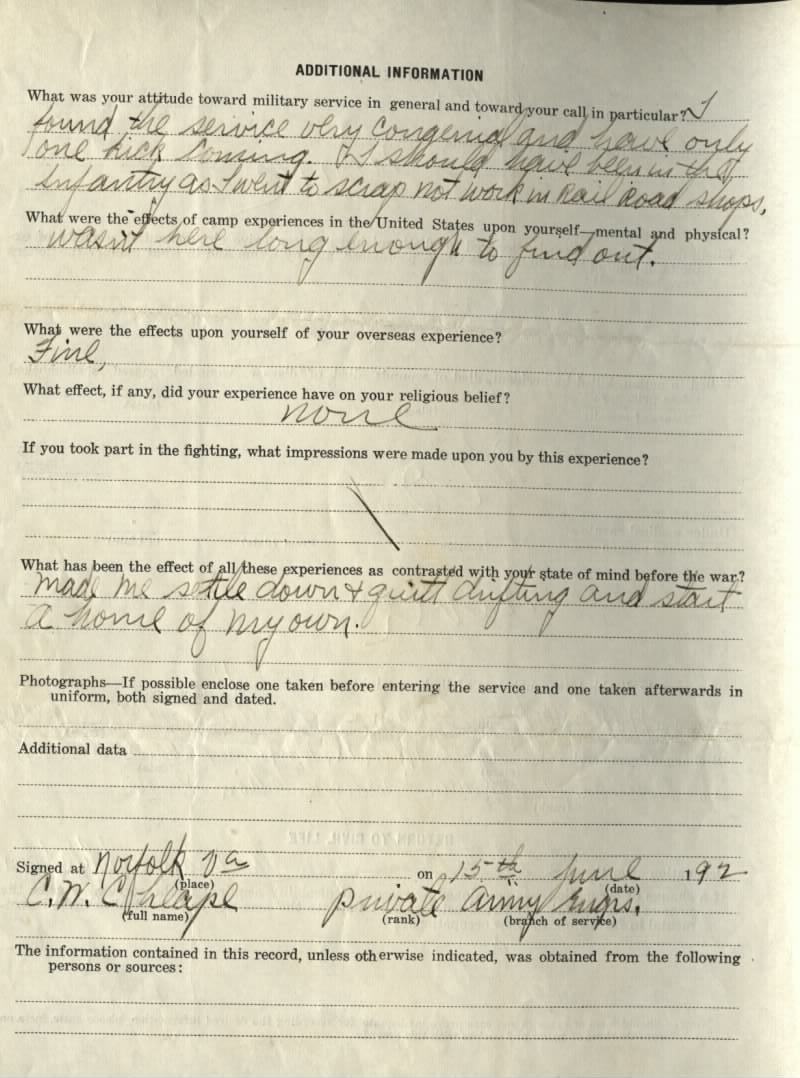 ADDITIONAL INFORMATION
What was your attitude toward military service in general and toward your call in particular? I
found the service very congenial and have only
one kick coming. I should have been in the
Infantry as I went to scrap not work in Rail Road shops,
What were the effects of camp experiences in the United States upon yourself—mental and physical?
wasn't here long enough to find out.
What were the effects upon yourself of your overseas experience?
Fine,
What effect, if any, did your experience have on your religious belief?
none
If you took part in the fighting, what impressions were made upon you by this experience?
What has been the effect of all these experiences as contrasted with your state of mind before the war?
Made me settle down & quitt drifting and start
a home of my own.
Photographs—If possible enclose one taken before entering the service and one taken afterwards in
uniform, both signed and dated.
Additional data
Signed at Norfolk Va on 15th June 192
(place) (date)
C. W. Cheape private Army Engrs.
(full name) (rank) (branch of service)
The information contained in this record, unless otherwise indicated, was obtained from the following
persons or sources: